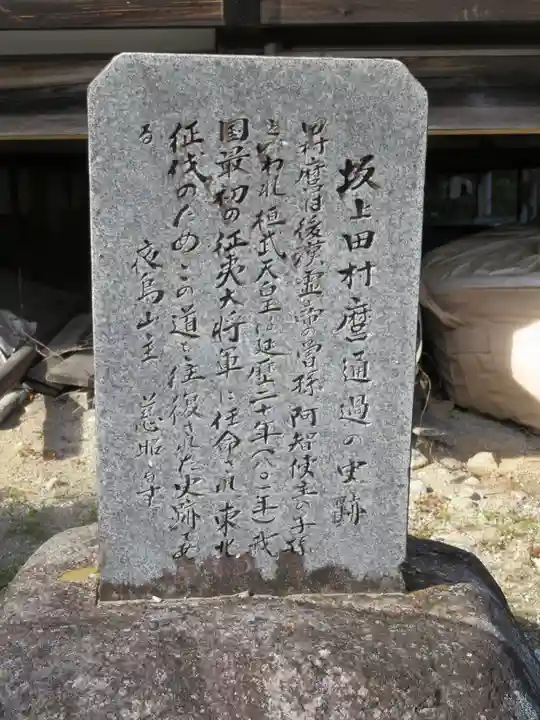 坂上田村麿通過の史跡
舛麿は後漢霊帝の曽孫阿智使主の子孫
と云われ桓武天皇は延暦二十年(八〇一年)我
国最初の征夷大将軍に任命され東北
征伐のためこの道を往復された史跡である
夜烏山主 慈昭しるす